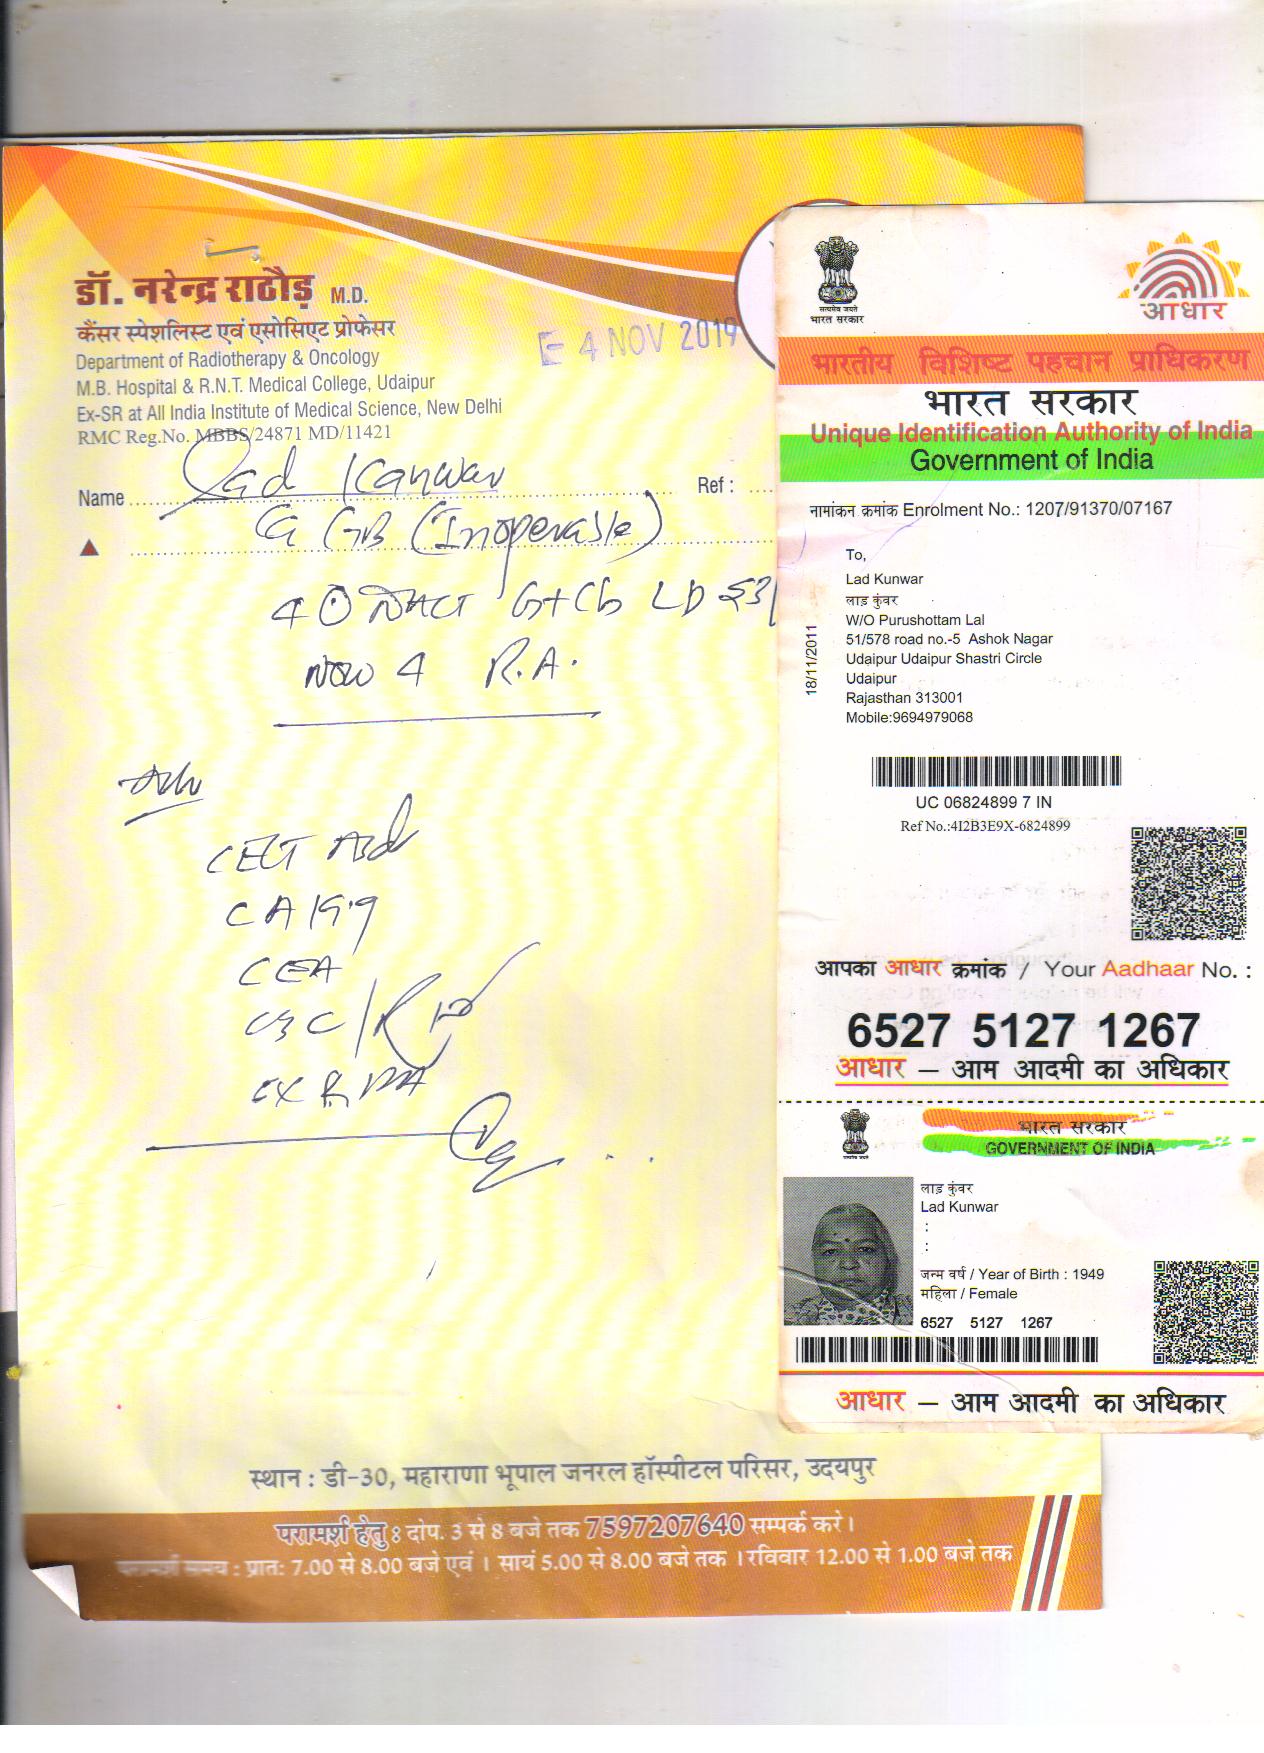 डॉ. नरेन्द्र राठौड़ M.D.
कैंसर स्पेशलिस्ट एवं एसोसिएट प्रोफेसर
Department of Radiotherapy & Oncology
M.B. Hospital & R.N.T. Medical College, Udaipur
Ex-SR at All India Institute of Medical Science, New Delhi
RMC Reg.No. MBBS/24871 MD/11421
4 NOV 2019
Name Lad Kanwar
Ref :
Ca GB (Inoperable)
NACT G+Cb LD
Now 4 R.A.
Adv
CECT Abd
CA 19.9
CEA
CBC/RFT
स्थान : डी-30, महाराणा भूपाल जनरल हॉस्पीटल परिसर, उदयपुर
परामर्श हेतु : दोप. 3 से 8 बजे तक 7597207640 सम्पर्क करे।
परामर्श समय : प्रात: 7.00 से 8.00 बजे एवं । सायं 5.00 से 8.00 बजे तक । रविवार 12.00 से 1.00 बजे तक
सत्यमेव जयते
भारत सरकार
आधार
भारतीय विशिष्ट पहचान प्राधिकरण
भारत सरकार
Unique Identification Authority of India
Government of India
नामांकन क्रमांक Enrolment No.: 1207/91370/07167
To,
Lad Kunwar
लाड़ कुंवर
W/O Purushottam Lal
51/578 road no.-5 Ashok Nagar
Udaipur Udaipur Shastri Circle
Udaipur
Rajasthan 313001
Mobile:9694979068
18/11/2011
UC 06824899 7 IN
Ref No.:4I2B3E9X-6824899
आपका आधार क्रमांक / Your Aadhaar No. :
6527 5127 1267
आधार — आम आदमी का अधिकार
भारत सरकार
GOVERNMENT OF INDIA
लाड़ कुंवर
Lad Kunwar
:
:
जन्म वर्ष / Year of Birth : 1949
महिला / Female
6527 5127 1267
आधार — आम आदमी का अधिकार